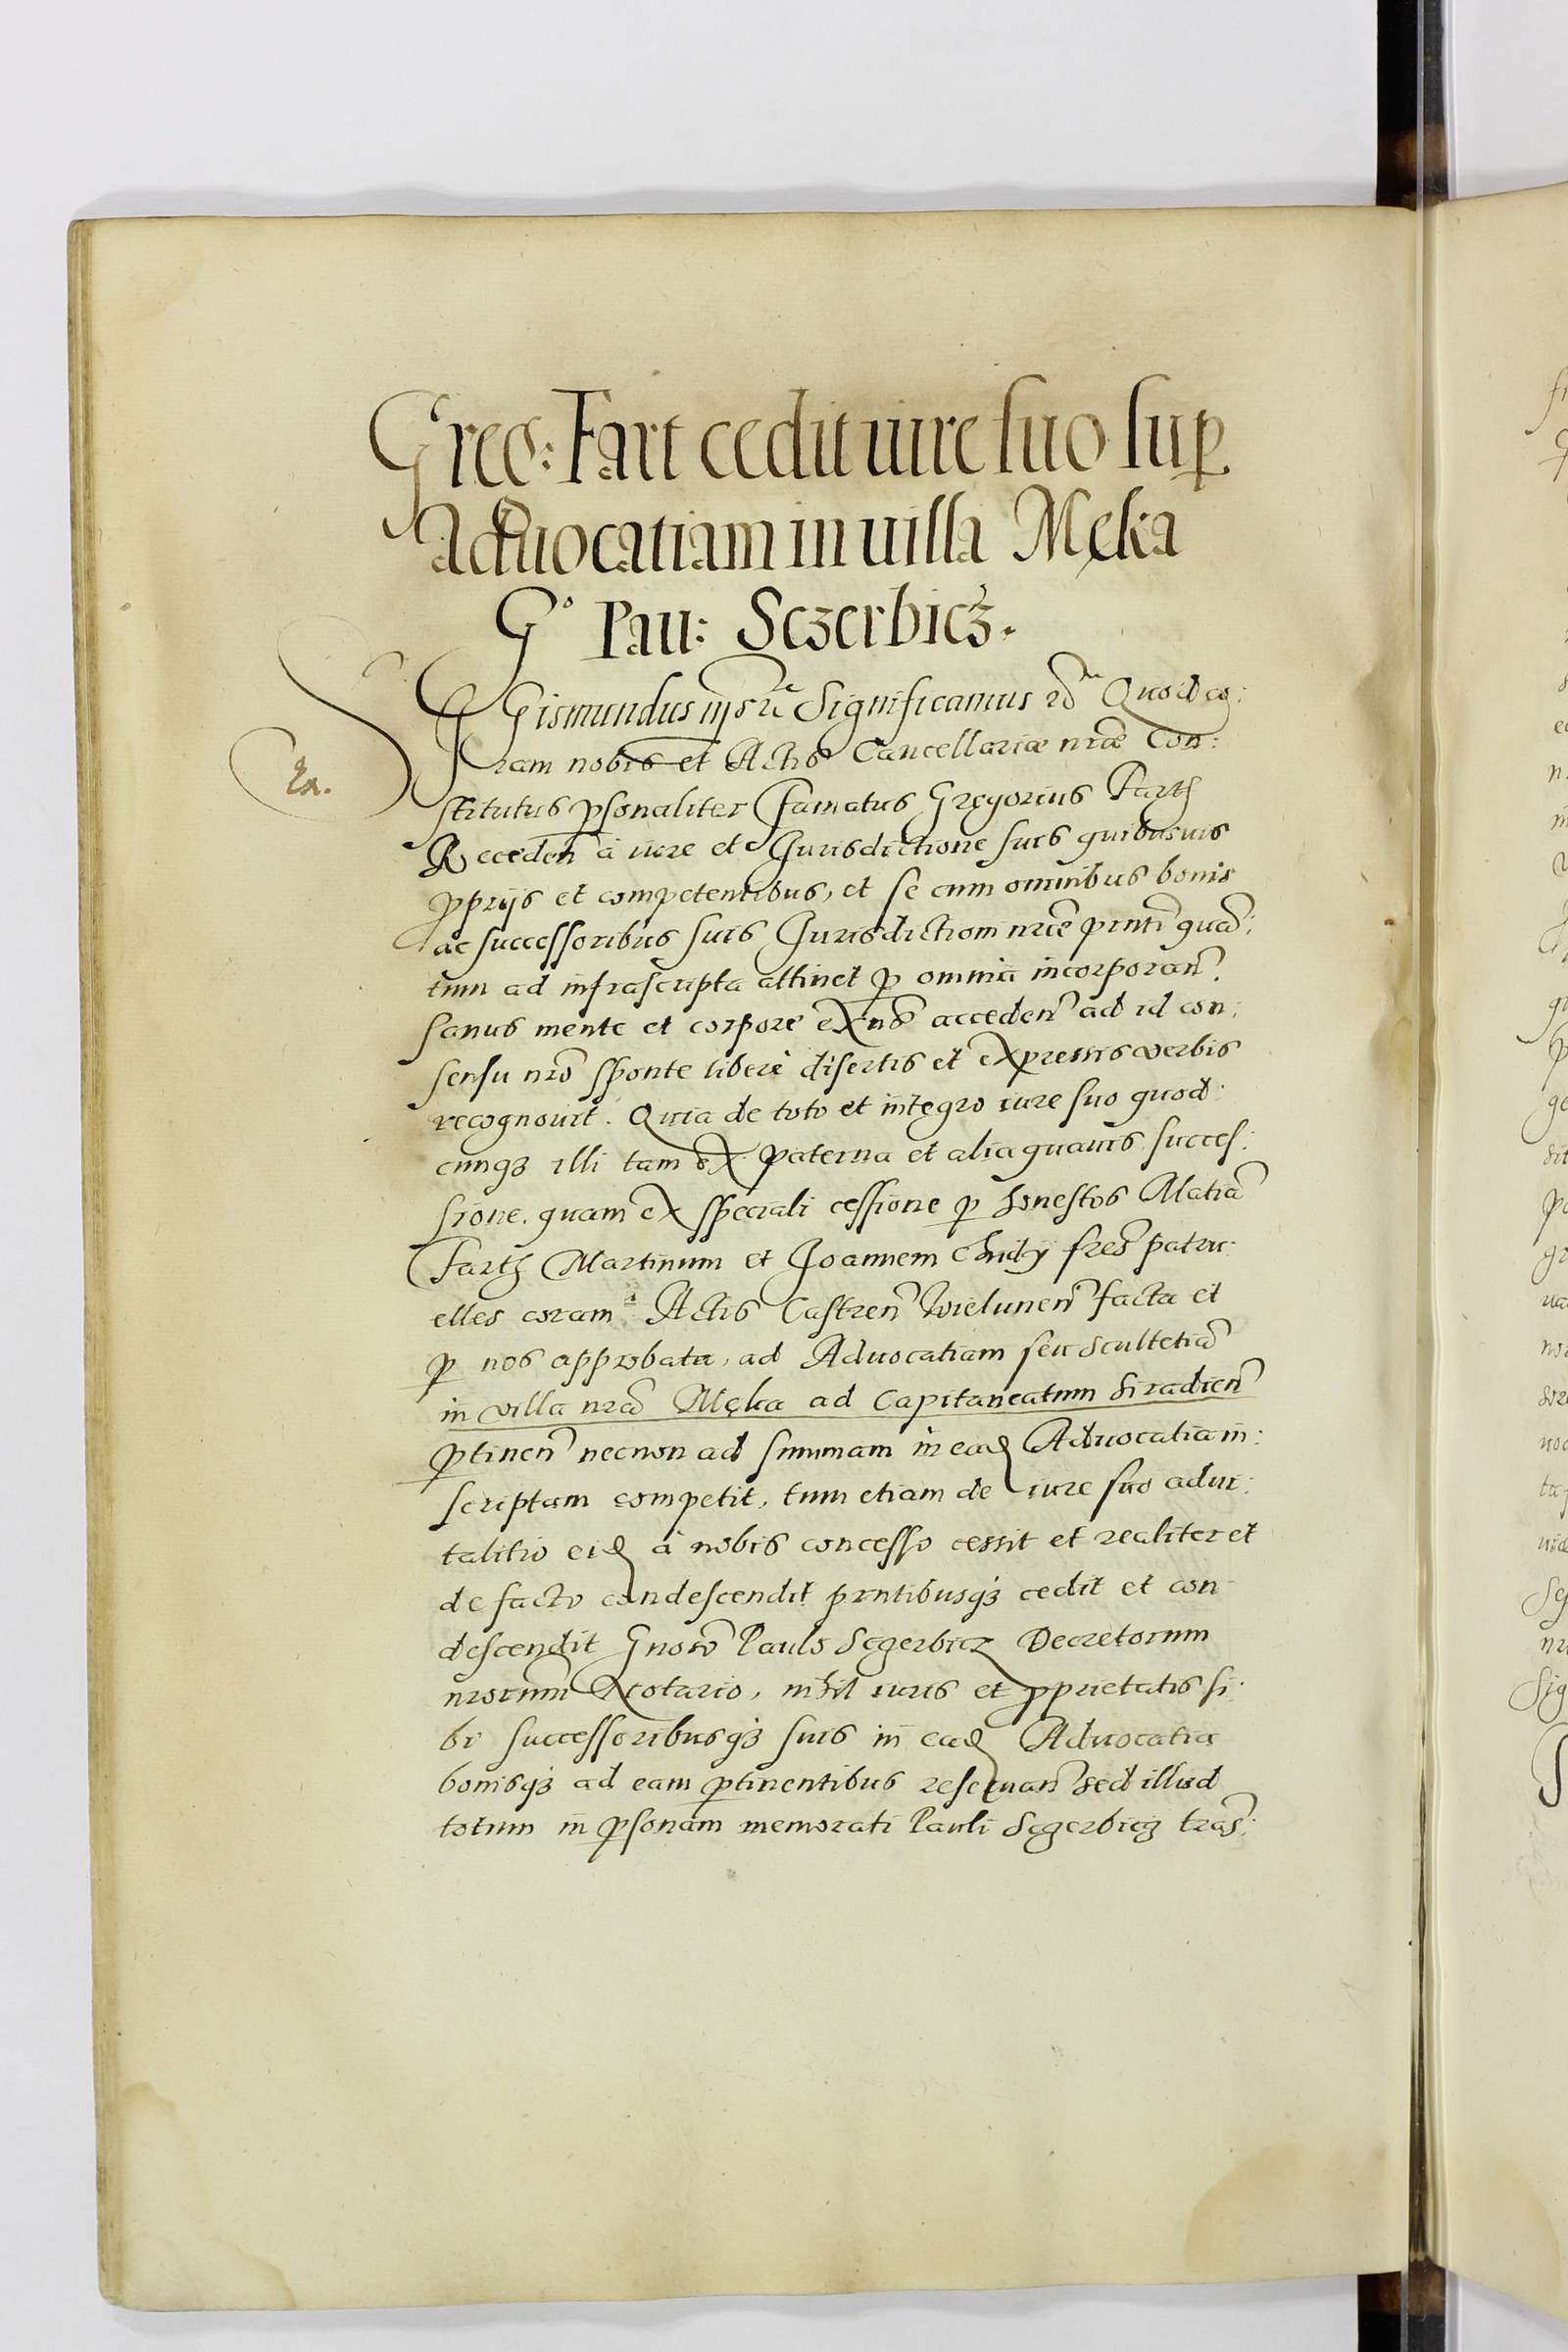 Greg: Fart cedit iure suo sup
Aduocatiam in uilla Męka
G° Pau: Sczerbicz.
SIGismundus iijus rc Significamus rc Quod co:
ram nobis et Actis Cancellariæ nræ Con:
Ex.
stitutus psonaliter famatus Gregorius Farth
Receden à iure et Jurisdictione suis quibusuis
pprijs et competentibus, et se cum omnibus bonis
ac successoribus suis Jurisdictioni nræ pnti quan:
tum ad infrascripta attinet p omnia incorporan
sanus mente et corpore ex nro acceden ad id con:
sensu nro sponte libere disertis et expressis verbis
recognouit. Quia de toto et integro iure suo quod:
cunqz illi tam ex paterna et alia quauis succes:
sione. quam ex speciali cessione p honestos Matia
Farth Martinum et Joannem Chudy fres patru:
elles coram Actis Castren Wielunen facta et
p nos approbata, ad Aduocatiam seu Scultetia
in villa nra Męka ad Capitaneatum Siradien
ptinen necnon ad summam in ead Aduocatia in:
scriptam competit, tum etiam de iure suo adui:
talitio eid à nobis concesso cessit et realiter et
de facto condescendit pntibusqz cedit et con
descendit Gnoso Paulo Sczerbicz Decretorum
nrorum Notario, nihil iuris et pprietatis si
bi successoribusqz suis in ead Aduocatia
bonisqz ad eam ptinentibus reseruan sed illud
totum in psonam memorati Pauli Sczerbicz tras: